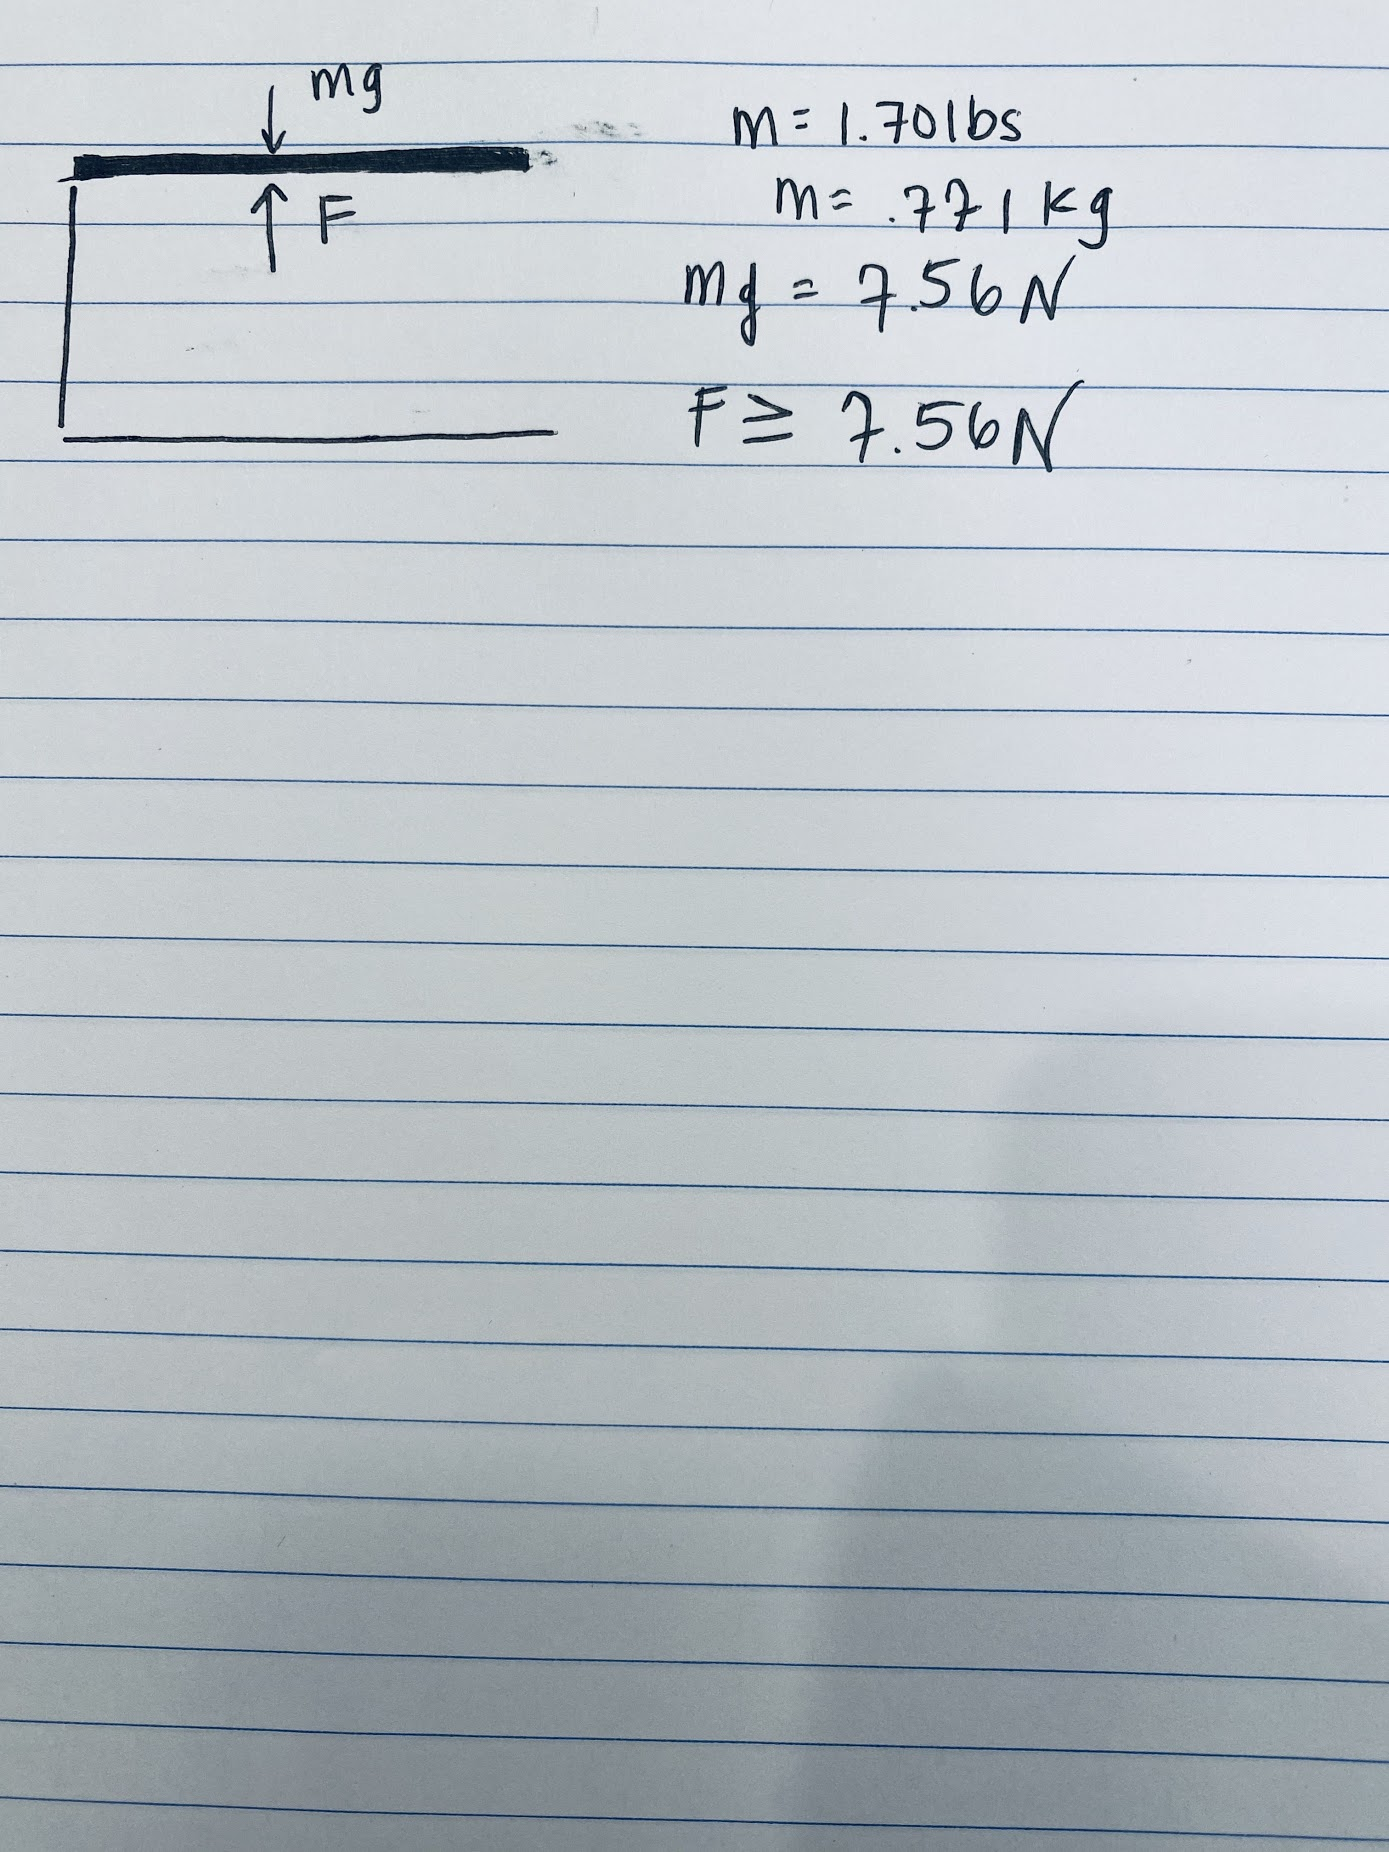 mg
F
m = 1.70lbs
m = .771 kg
mg = 7.56 N
F ≥ 7.56N